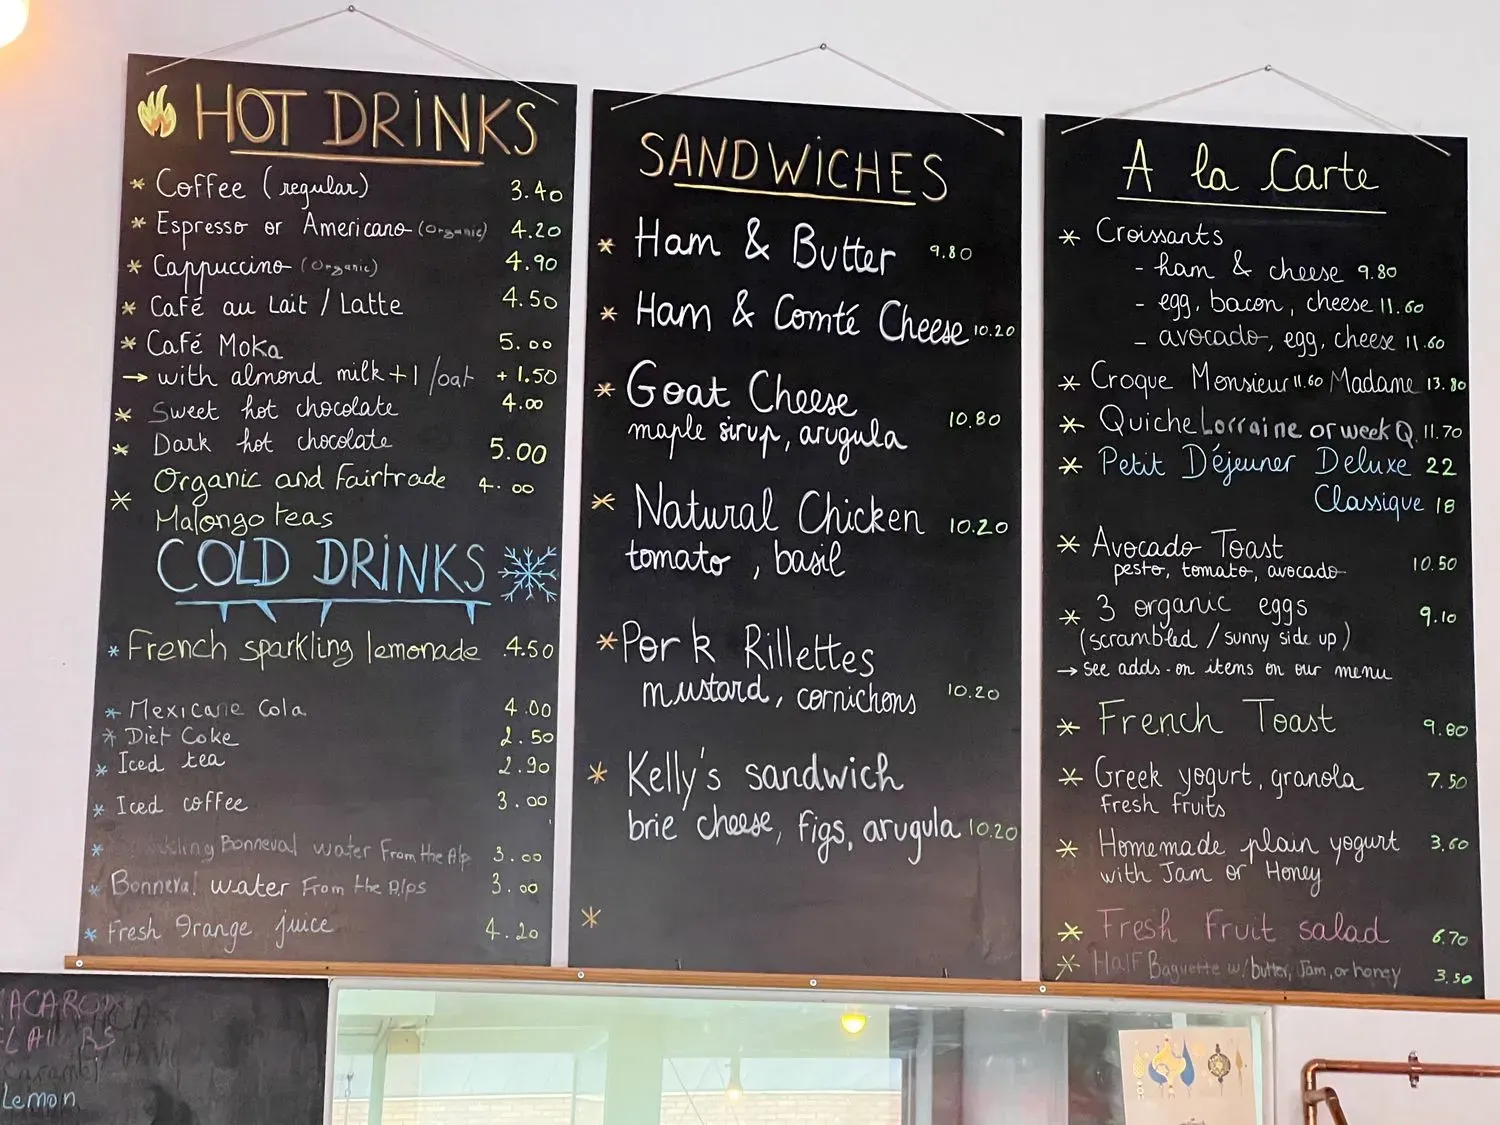 HOT DRINKS
* Coffee (regular) 3.40
* Espresso or Americano (Organic) 4.20
* Cappuccino (Organic) 4.90
* Café au Lait / Latte 4.50
* Café Moka 5.00
→ with almond milk +1 /oat +1.50
* Sweet hot chocolate 4.00
* Dark hot chocolate 5.00
* Organic and Fairtrade 4.00
Malongo teas
COLD DRINKS
* French sparkling lemonade 4.50
* Mexicane Cola 4.00
* Diet Coke 2.50
* Iced tea 2.90
* Iced coffee 3.00
* Bonneval water From the Alp 3.00
* Bonneval water From the Alps 3.00
* Fresh Orange juice 4.20
SANDWICHES
* Ham & Butter 9.80
* Ham & Comté Cheese 10.20
* Goat Cheese 10.80
maple sirup, arugula
* Natural Chicken 10.20
tomato, basil
* Pork Rillettes
mustard, cornichons 10.20
* Kelly's sandwich
brie cheese, figs, arugula 10.20
*
A la Carte
* Croissants
- ham & cheese 9.80
- egg, bacon, cheese 11.60
- avocado, egg, cheese 11.60
* Croque Monsieur 11.60 Madame 13.80
* Quiche Lorraine or week Q. 11.70
* Petit Déjeuner Deluxe 22
Classique 18
* Avocado Toast 10.50
pesto, tomato, avocado
* 3 organic eggs 9.10
(scrambled / sunny side up)
→ see adds-on items on our menu
* French Toast 9.80
* Greek yogurt, granola 7.50
fresh fruits
* Homemade plain yogurt 3.60
with Jam or Honey
* Fresh Fruit salad 6.70
* Half Baguette w/ butter, Jam, or honey 3.50
Caramel
Lemon